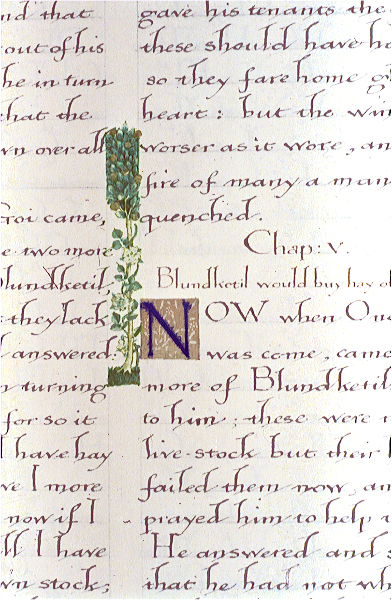 nd that
out of his
he in turn
hat the
wn over all
Goi came,
e two more
lundketil,
they lack
answered.
n turning
for so it
I have hay
ve I more
now if I
ll I have
wn stock;
gave his tenants the
these should have ha
so they fare home g
heart: but the win
worser as it wore, an
fire of many a man
quenched.
Chap: v.
Blundketil would buy hay o
NOW when One
was come, came
more of Blundketil
to him; these were
live-stock but their
failed them now, an
prayed him to help
He answered and s
that he had not wh